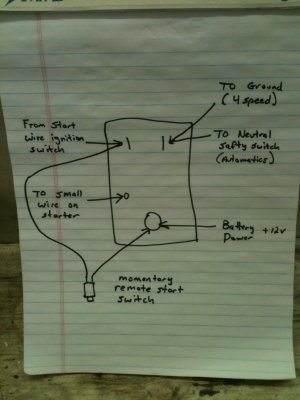 TO Ground
(4 speed)
From Start
wire ignition
switch
TO Neutral
safty switch
(Automatics)
TO small
wire on
starter
Battery +12v
Power
momentary
remote start
switch